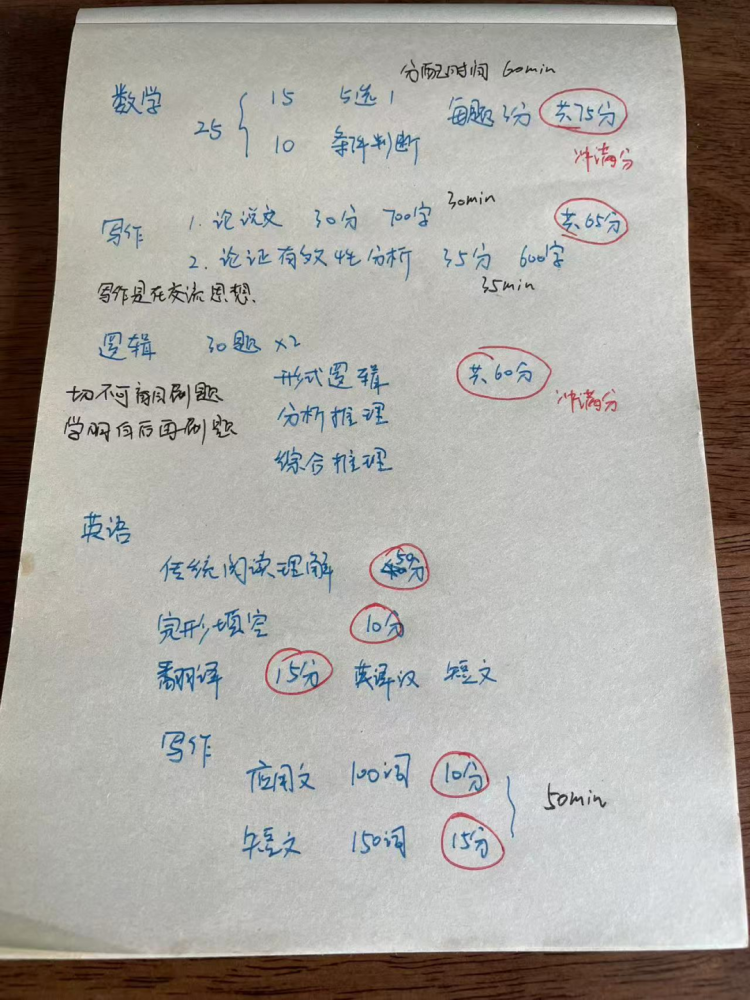 分配时间 60min
数学 25 { 15 5选1 每题3分 共75分
10 条件判断 冲满分
30min
写作 1. 论说文 30分 700字 共65分
2. 论证有效性分析 35分 600字
写作是在交流思想. 35min
逻辑 30题 ×2 形式逻辑 共60分
切不可盲目刷题 分析推理 冲满分
学明白后再刷题
综合推理
英语
传统阅读理解 50分
完形填空 10分
翻译 15分 英译汉 短文
写作
应用文 100词 10分
} 50min
短文 150词 15分